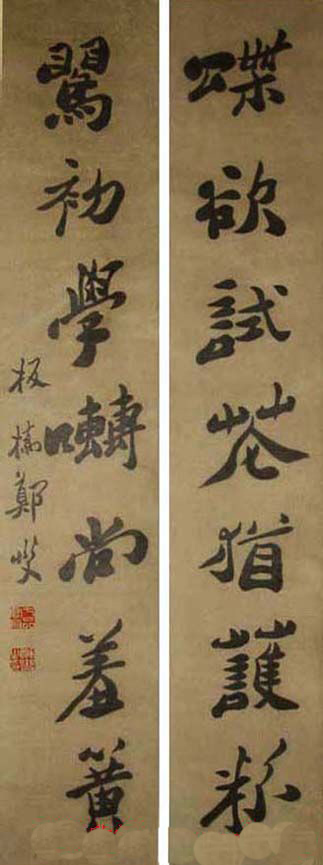 蝶欲試花猶護粉
鶯初學囀尚羞簧
板橋鄭燮